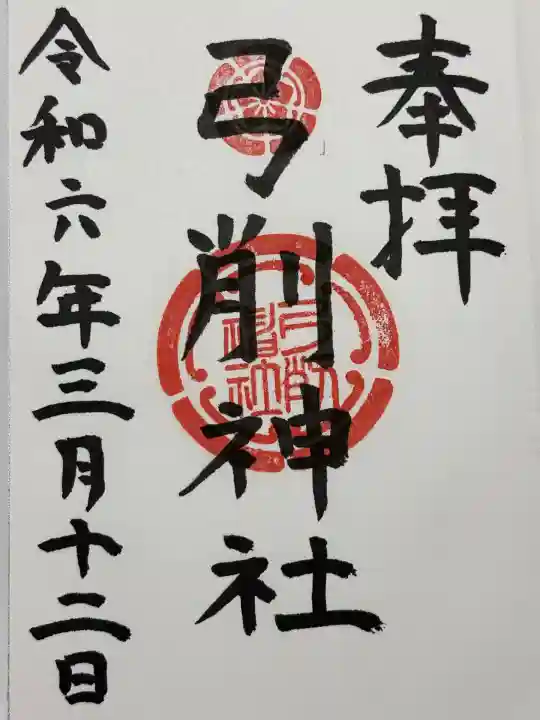 奉拝
弓削神社
令和六年三月十二日